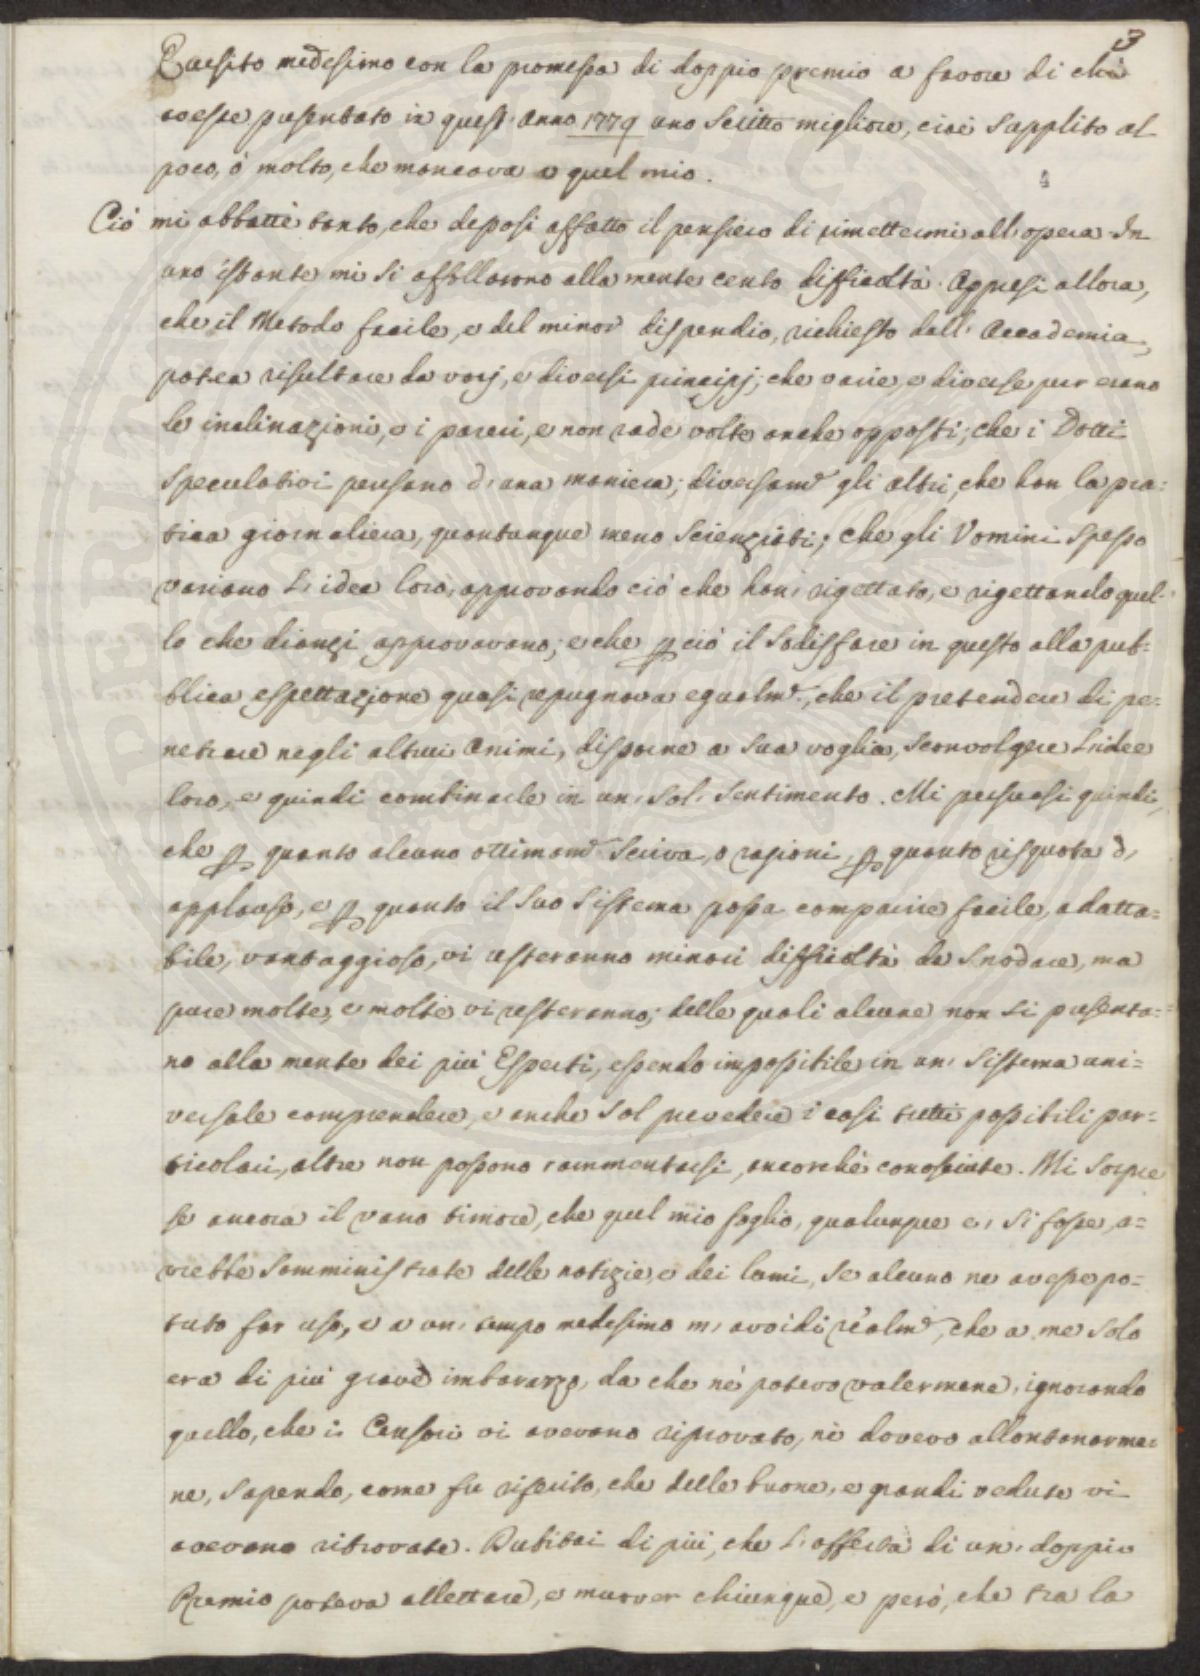 3
Quesito medesimo con la promessa di doppio premio a favore di chi
avesse presentato in quest'anno 1779 uno Scritto migliore, cioè Supplito al
poco, ò molto, che mancava a quel mio.
Ciò mi abbattè tanto, che deposi affatto il pensiero di rimettermi all'opera. In
uno istante mi si affollarono alla mente cento difficoltà. Appresi allora,
che il Metodo facile, e del minor dispendio, richiesto dall'Accademia,
potea risultare da varj, e diversi principj; che varie, e diverse pur erano
le inclinazioni, e i pareri, e non rade volte anche opposti; che i Dotti
Speculativi pensano d'una maniera; diversam.e gli altri, che han la pra=
tica giornaliera, quantunque meno Scienziati; che gli Uomini Spesso
variano l'idea loro, approvando ciò che han' rigettato, e rigettando quel=
lo che dianzi approvavano; e che p ciò il Sodisfare in questo alla pub=
blica espettazione quasi repugnava egualm.e, che il pretendere di pe=
netrare negli altrui Animi, disporne a Sua voglia, Sconvolgere l'idee
loro, e quindi combinarle in un'Sol'Sentimento. Mi persuasi quindi,
che p quanto alcuno ottimam.e Scriva, o ragioni, p quanto risquota d'
applauso, e p quanto il Suo Sistema possa comparire facile, adatta=
bile, vantaggioso, vi resteranno minori difficoltà da Snodare, ma
pure molte, e molte vi resteranno; delle quali alcune non si presenta=
no alla mente dei più Esperti, essendo impossibile in un' Sistema uni=
versale comprendere, e anche Sol prevedere i casi tutti possibili par=
ticolari, altre non possono rammentarsi, ancorchè conosciute. Mi Sorpre
se ancora il vano timore, che quel mio foglio, qualunque e' Si fosse, a=
vrebbe Somministrate delle notizie, e dei lumi, Se alcuno ne avesse po=
tuto far uso, e a un'tempo medesimo m'avvidi realm.e, che a me Solo
era di più grave imbarazzo, da che nè potevo valermene, ignorando
quello, che i Censori vi avevano riprovato, nè dovevo allontanarme=
ne, Sapendo, come fu riferito, che delle buone, e grandi vedute vi
avevano ritrovate. Dubitai di più, che l'offerta di un' doppio
Premio poteva allettare, e muover chiunque, e però, che tra la